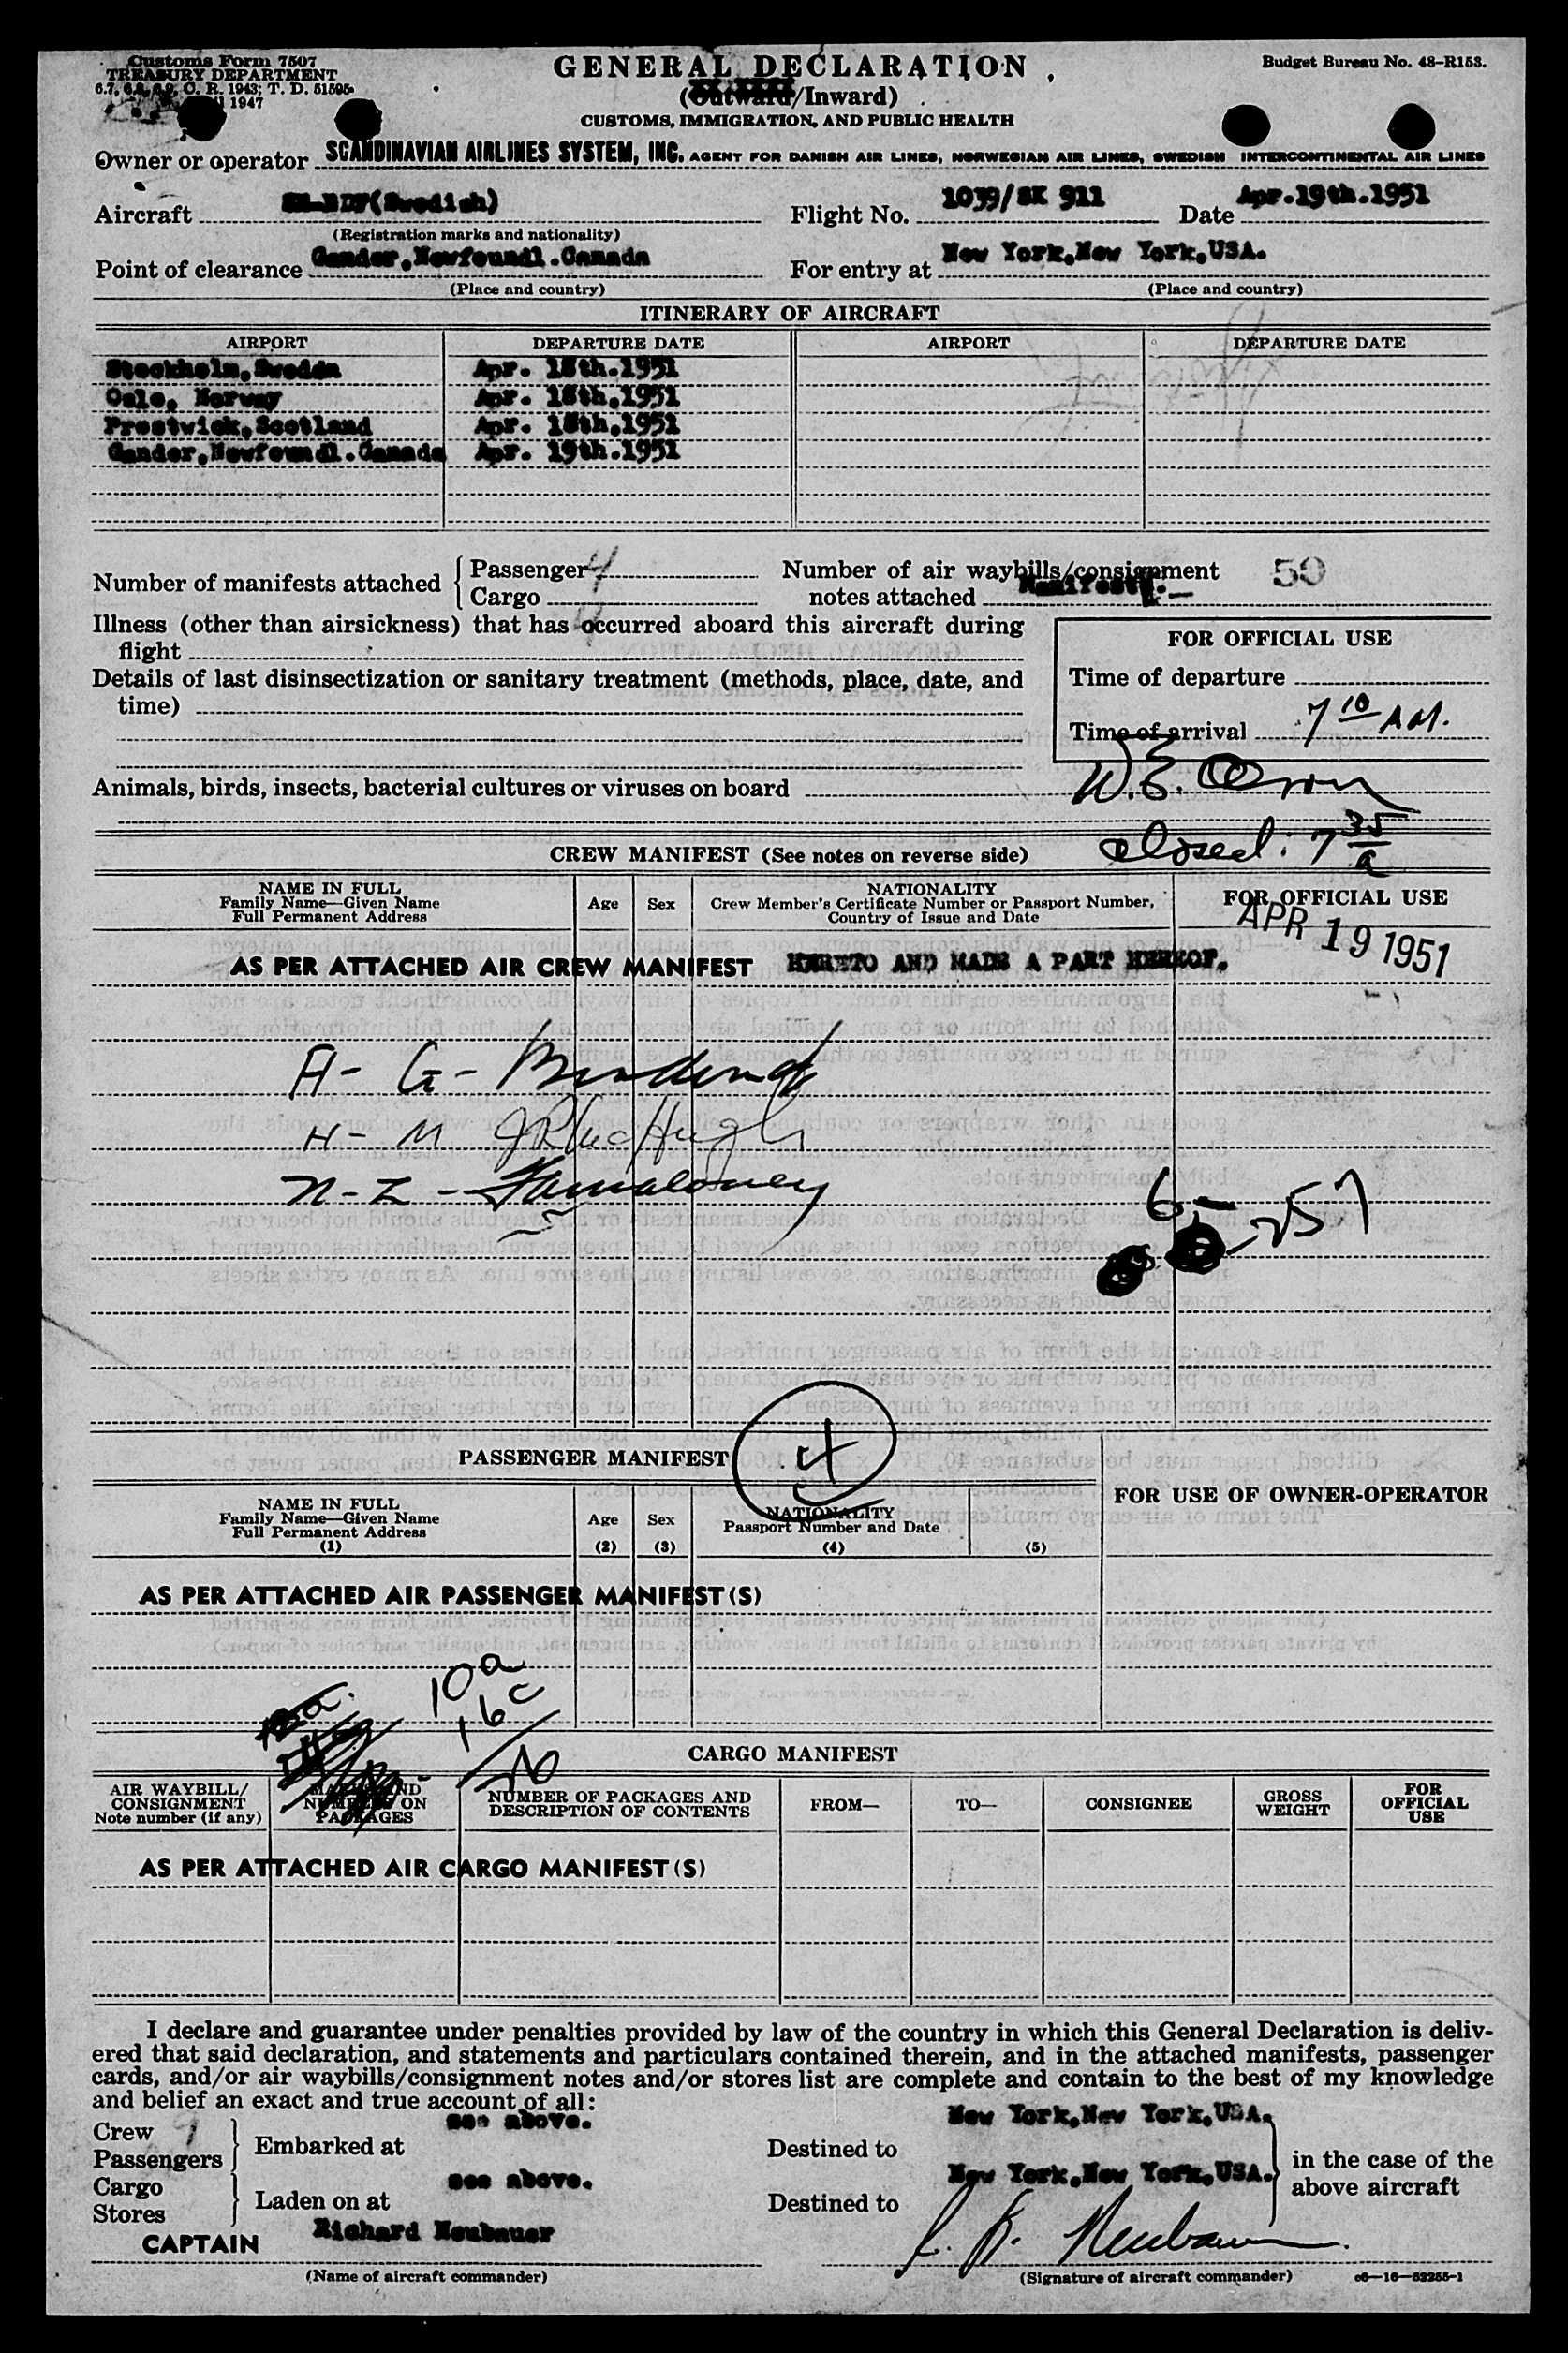 Customs Form 7507
TREASURY DEPARTMENT
6.7, 6.8, 6.9, C. R. 1943; T. D. 51595
1947
GENERAL DECLARATION
(Outward/Inward)
CUSTOMS, IMMIGRATION, AND PUBLIC HEALTH
Budget Bureau No. 48-R153.
Owner or operator SCANDINAVIAN AIRLINES SYSTEM, INC. AGENT FOR DANISH AIR LINES, NORWEGIAN AIR LINES, SWEDISH INTERCONTINENTAL AIR LINES
Aircraft (Swedish) Flight No. 1039/SK 911 Date Apr.19th.1951
(Registration marks and nationality)
Point of clearance Gander,Newfoundl.Canada For entry at New York,New York,USA.
(Place and country) (Place and country)
ITINERARY OF AIRCRAFT
AIRPORT DEPARTURE DATE AIRPORT DEPARTURE DATE
Stockholm,Sweden Apr. 18th.1951
Oslo, Norway Apr. 18th,1951
Prestwick,Scotland Apr. 18th,1951
Gander,Newfoundl.Canada Apr. 19th.1951
Number of manifests attached Passenger 4
Cargo 4
Number of air waybills/consignment 50
notes attached Manifests.
Illness (other than airsickness) that has occurred aboard this aircraft during
flight
Details of last disinsectization or sanitary treatment (methods, place, date, and
time)
FOR OFFICIAL USE
Time of departure
Time of arrival 7 10 AM.
Animals, birds, insects, bacterial cultures or viruses on board
W.E.
closed: 7 35 a
CREW MANIFEST (See notes on reverse side)
NAME IN FULL
Family Name—Given Name
Full Permanent Address
Age Sex
NATIONALITY
Crew Member's Certificate Number or Passport Number,
Country of Issue and Date
FOR OFFICIAL USE
APR 19 1951
AS PER ATTACHED AIR CREW MANIFEST HERETO AND MADE A PART HEREOF.
A- G-
H- M
N-Z-
6-257
PASSENGER MANIFEST
4
NAME IN FULL
Family Name—Given Name
Full Permanent Address
(1)
Age
(2)
Sex
(3)
NATIONALITY
Passport Number and Date
(4) (5)
FOR USE OF OWNER-OPERATOR
AS PER ATTACHED AIR PASSENGER MANIFEST(S)
10a
16c
26
CARGO MANIFEST
AIR WAYBILL/
CONSIGNMENT
Note number (if any)
MARKS AND
NUMBERS ON
PACKAGES
NUMBER OF PACKAGES AND
DESCRIPTION OF CONTENTS
FROM—
TO—
CONSIGNEE
GROSS
WEIGHT
FOR
OFFICIAL
USE
AS PER ATTACHED AIR CARGO MANIFEST(S)
I declare and guarantee under penalties provided by law of the country in which this General Declaration is deliv-
ered that said declaration, and statements and particulars contained therein, and in the attached manifests, passenger
cards, and/or air waybills/consignment notes and/or stores list are complete and contain to the best of my knowledge
and belief an exact and true account of all:
Crew
Passengers
Embarked at see above. Destined to New York,New York,USA.
Cargo
Stores
Laden on at see above. Destined to New York,New York,USA.
in the case of the
above aircraft
CAPTAIN Richard Neubauer
(Name of aircraft commander) (Signature of aircraft commander) c6—16—52255-1